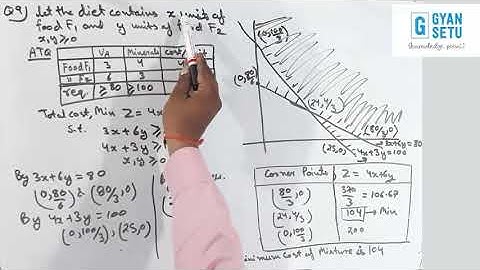 Q9) Let the diet contains x units of
food F1 and y units of food F2
x,y≥0
ATQ
VA Minerals Cost/unit
Food F1 3 4 4
" F2 6 3
req. ≥80 ≥100
Total cost, Min Z = 4x
s.t. 3x+6y≥
4x+3y≥
x,y≥
By 3x+6y=80
(0,80/6) & (80/3,0)
By 4x+3y=100
(0,100/3), (25,0)
(0,100/3)
(0,80/6)
(24,4/3)
(80/3,0)
3x+6y=80
(25,0)
4x+3y=100
Corner Points Z=4x+6y
(80/3,0) 320/3=106.67
(24,4/3) 104→Min
(0,100/3) 200
inimum cost of Mixture is 104
GYAN
SETU